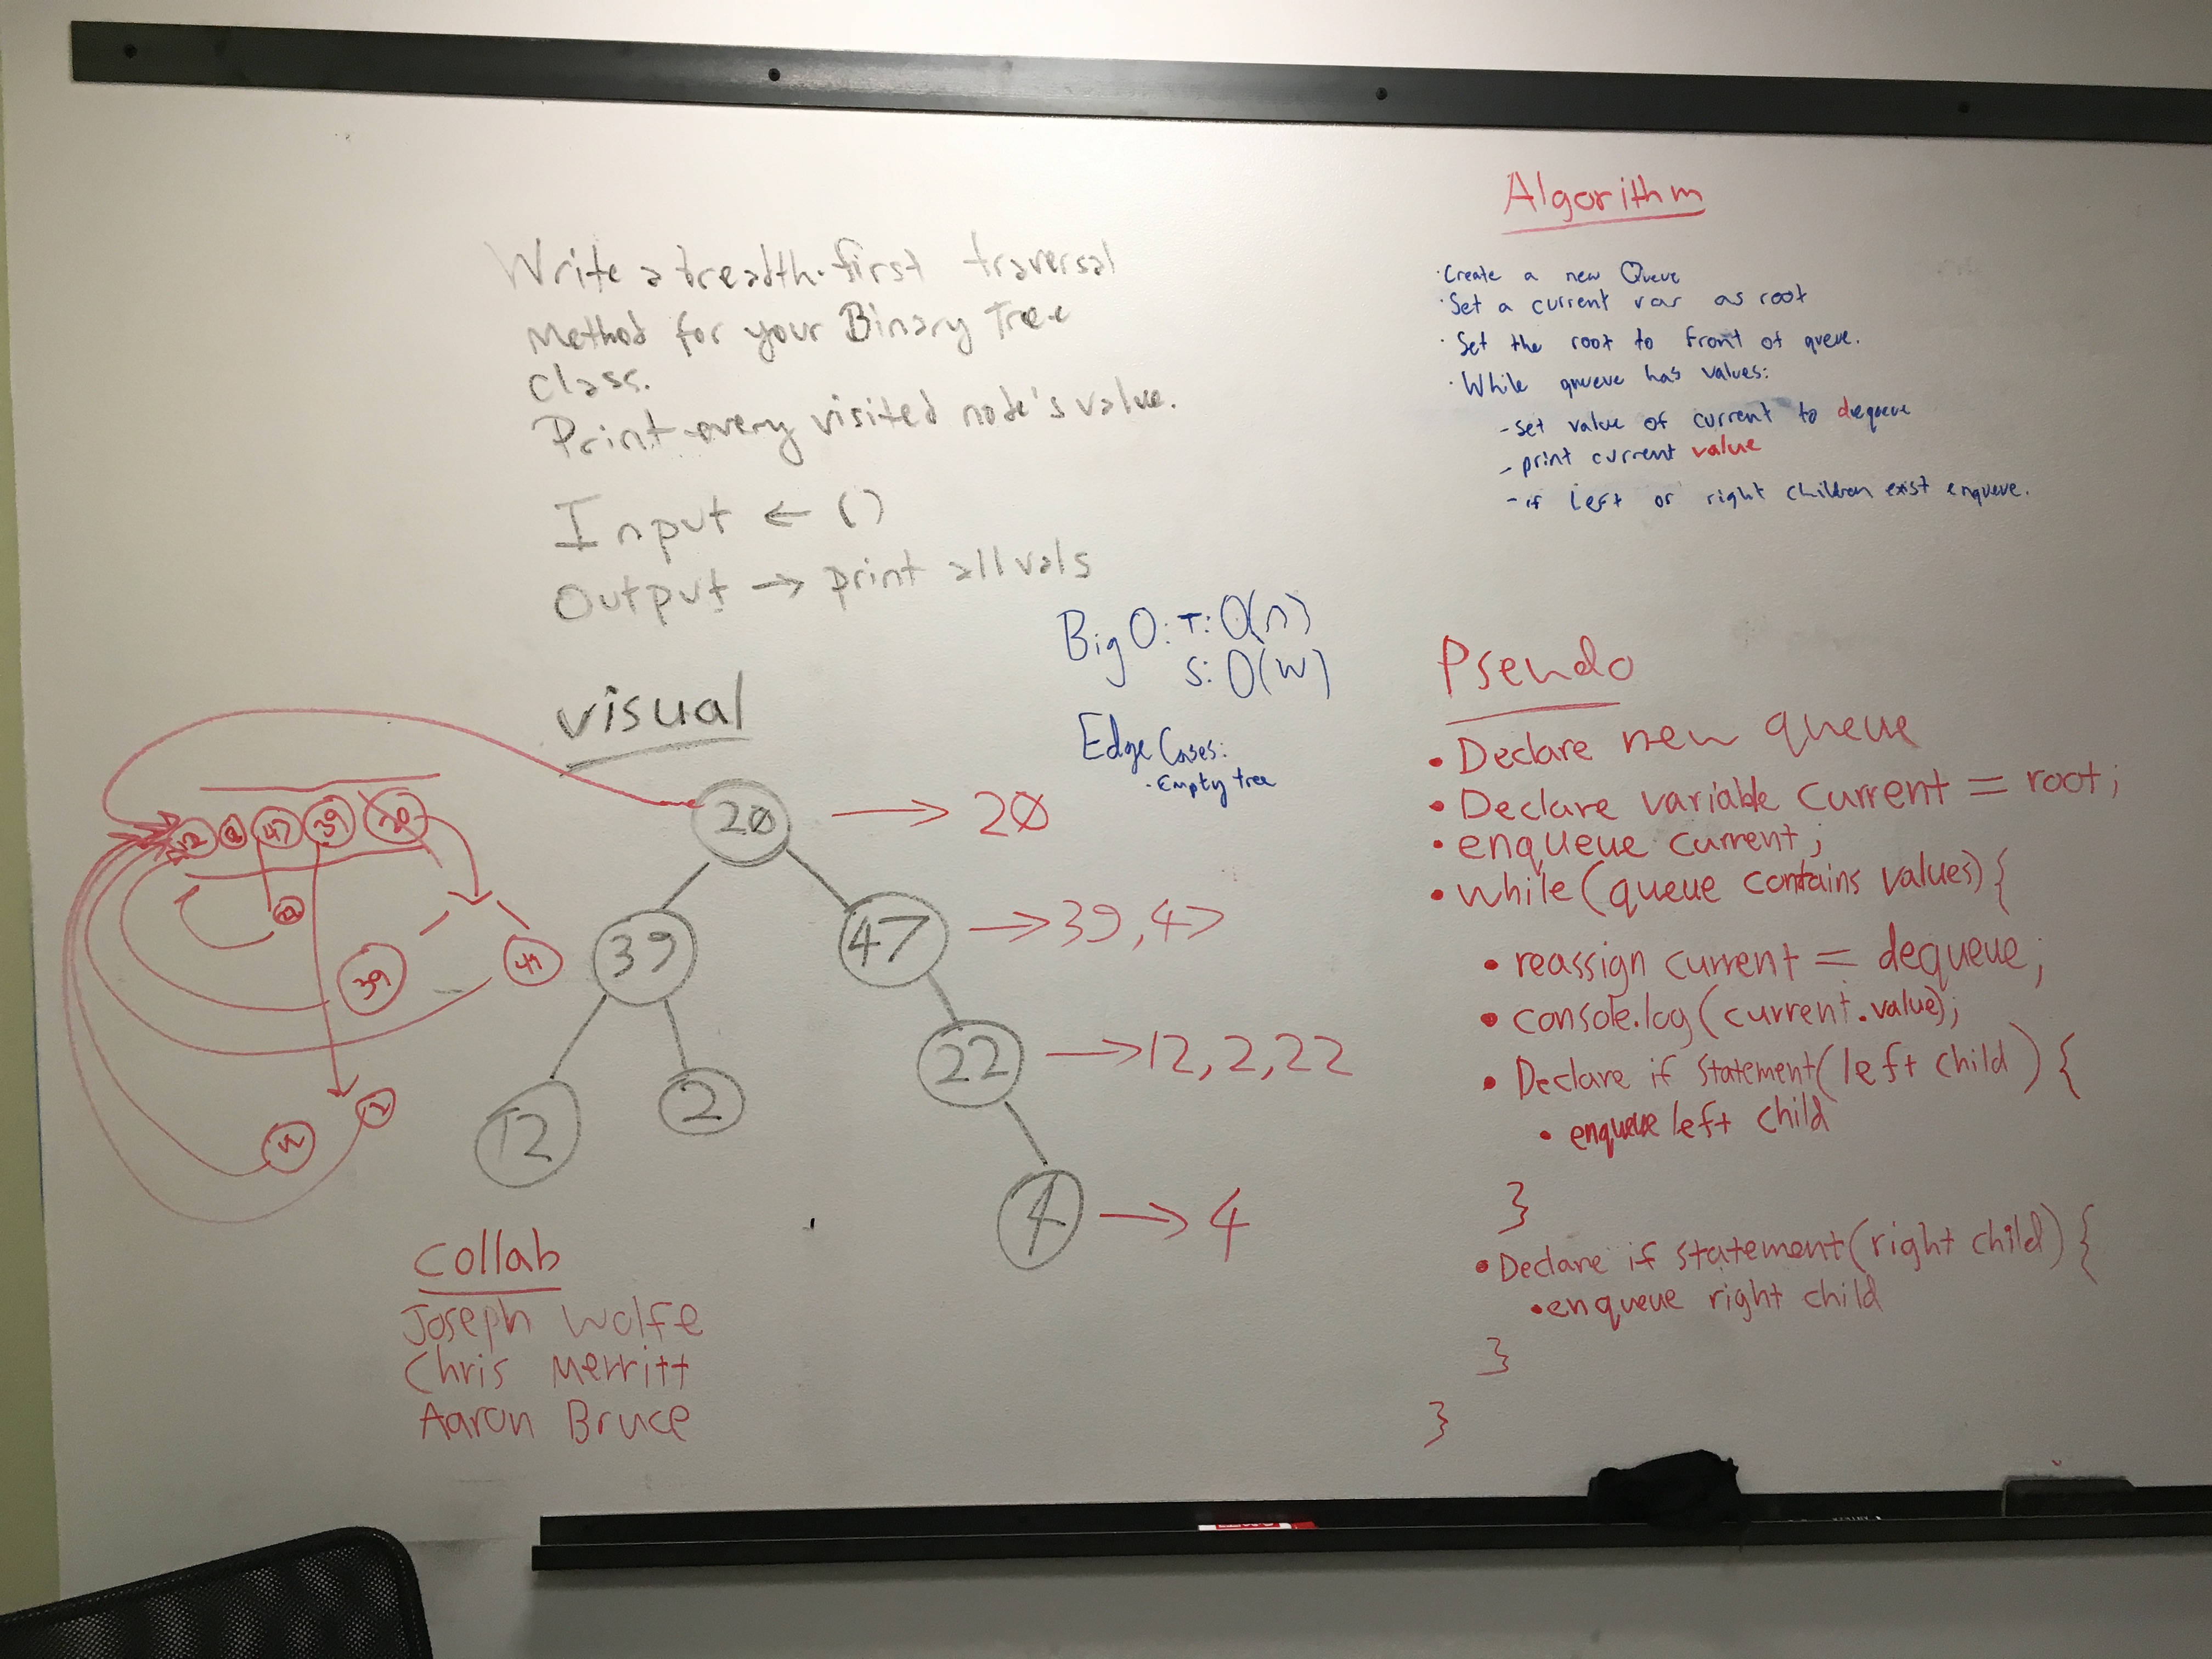 Write a breadth-first traversal
Method for your Binary Tree
class.
Print every visited node's value.
Input ← ()
Output → print all vals
Big O: T: O(n)
S: O(W)
Edge Cases:
· Empty tree
visual
20 → 20
39 47 → 39, 47
12 2 22 → 12, 2, 22
4 → 4
47 39 20
39
collab
Joseph Wolfe
Chris Merritt
Aaron Bruce
Algorithm
· Create a new Queue
· Set a current var as root
· Set the root to front of queue.
· While queue has values:
- set value of current to dequeue
- print current value
- if left or right children exist enqueue.
Pseudo
• Declare new queue
• Declare variable current = root;
• enqueue current;
• while (queue contains values) {
• reassign current = dequeue;
• console.log(current.value);
• Declare if statement (left child) {
• enqueue left child
}
• Declare if statement (right child) {
• enqueue right child
}
}